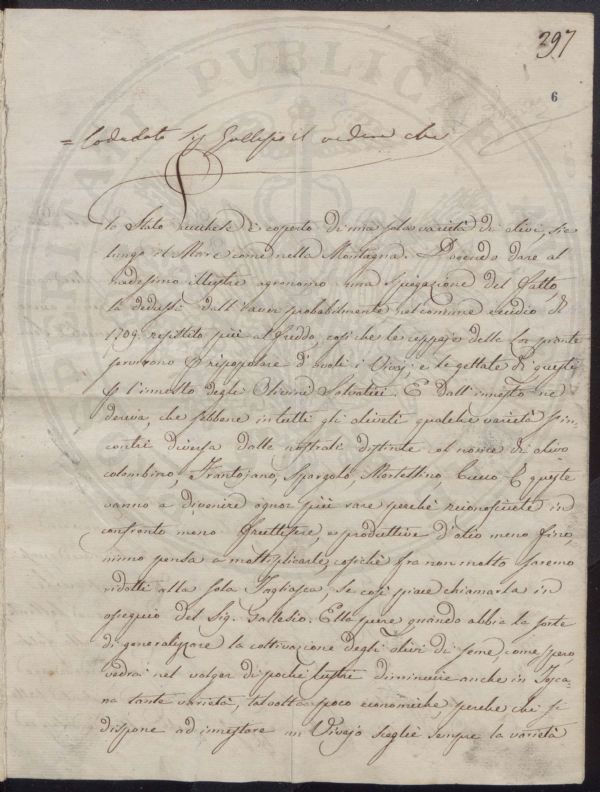 397
6
= Lodadato Sig Gallesio il vedere che
lo Stato Lucchese è coperto di una sola varietà di olivi, sie
lungo il Mare come nella Montagna. Dovendo dare al
medesimo illustre agronomo una spiegazione del fatto,
la dedussi dall'aver probabilmente nel comune eccidio di
1709 resistito più al freddo, così che le ceppaje delle Lor piante
servirono p ripopolare d'ovoli i Vivaj e le gettate di queste
p l'innesto degli Olivini Salvatici. E dall'innesto ne
deriva, che sebbene in tutti gli oliveti qualche varietà s'in-
contri diversa dalle nostrali distinte col nome di olivo
colombino, Frantojano, Mortellino, Cucco, E queste
vanno a divenire ognor più rare perchè riconosciute in
confronto meno fruttifere e produttive d'olio meno fino,
niuno pensa a moltiplicarle, cosichè fra non molto saremo
ridotti alla sola Tagliasca, se così piace chiamarla in
ossequio del Sig. Gallesio. Ella pure quando abbia la sorte
di generalizzare la coltivazione degli olivi di seme come spero,
vedrà nel volger di pochi lustri diminuire anche in Tosca-
na tante varietà, talvolta poco economiche, perche chi si
dispone ad innestare un Vivajo sceglie sempre la varietà